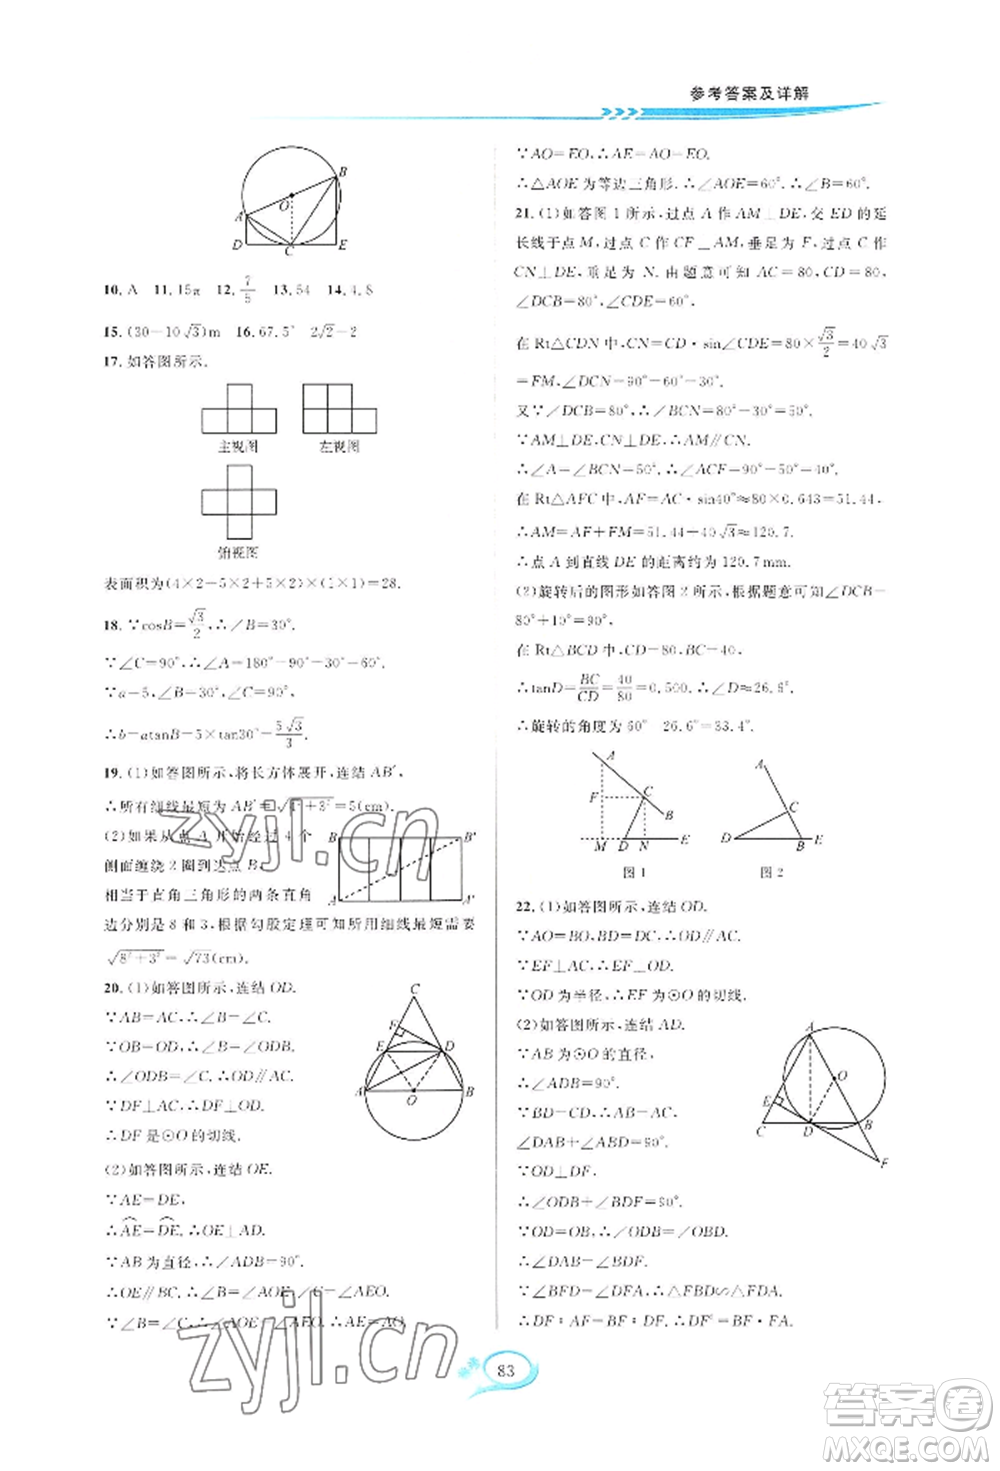 参考答案及详解
B
O
A
D
C
E
10. A 11. 15π 12. 7/5 13. 54 14. 4.8
15. (30-10√3)m 16. 67.5° 2√2-2
17. 如答图所示.
主视图 左视图
俯视图
表面积为(4×2-5×2+5×2)×(1×1)=28.
18. ∵cosB=√3/2,∴∠B=30°.
∵∠C=90°,∴∠A=180°-90°-30°=60°.
∵a-5,∠B-30°,∠C-90°,
∴b-atanB-5×tan30°-5√3/3.
19. (1)如答图所示,将长方体展开,连结 AB′,
∴所有细线最短为 AB′=√4²+3²=5(cm).
(2)如果从点 A 开始经过 4 个
侧面缠绕 2 圈到达点 B,
相当于直角三角形的两条直角
边分别是 8 和 3,根据勾股定理可知所用细线最短需要
√8²+3²=√73(cm).
B B′
A A′
20. (1)如答图所示,连结 OD.
∵AB=AC,∴∠B-∠C.
∵OB-OD,∴∠B-∠ODB.
∴∠ODB=∠C,∴OD∥AC.
∵DF⊥AC,∴DF⊥OD.
∴DF 是⊙O 的切线.
(2)如答图所示,连结 OE.
∵AE=DE,
∴AE-DE,∴OE⊥AD.
∵AB 为直径,∴∠ADB-90°.
∴OE∥BC,∴∠B=∠AOE,∠C=∠AEO.
∵∠B=∠C,∴∠AOE-∠AEO.
C
F
E
D
A
O
B
∵AO=EO,∴AE=AO-EO.
∴△AOE 为等边三角形.∴∠AOE=60°.∴∠B=60°.
21. (1)如答图 1 所示,过点 A 作 AM⊥DE,交 ED 的延
长线于点 M,过点 C 作 CF⊥AM,垂足为 F,过点 C 作
CN⊥DE,垂足为 N.由题意可知 AC=80,CD=80,
∠DCB-80°,∠CDE=60°.
在 Rt△CDN 中,CN=CD·sin∠CDE=80×√3/2=40√3
=FM,∠DCN-90°-60°-30°.
又∵∠DCB=80°,∴∠BCN-80°-30°=50°.
∵AM⊥DE,CN⊥DE,∴AM∥CN.
∴∠A-∠BCN-50°.∴∠ACF-90°-50°-40°.
在 Rt△AFC 中,AF=AC·sin40°≈80×0.643=51.44,
∴AM=AF+FM=51.44+40√3≈120.7mm.
∴点 A 到直线 DE 的距离约为 120.7mm.
(2)旋转后的图形如答图 2 所示,根据题意可知∠DCB-
80°+10°=90°.
在 Rt△BCD 中,CD-80,BC-40,
∴tanD=BC/CD=40/80=0.500,∴∠D≈26.6°.
∴旋转的角度为 60° 26.6°=33.4°.
A
F
C
B
M D N E
图 1
A
C
D
B E
图 2
22. (1)如答图所示,连结 OD.
∵AO=BO,BD=DC,∴OD∥AC.
∵EF⊥AC,∴EF⊥OD.
∵OD 为半径,∴EF 是⊙O 的切线.
(2)如答图所示,连结 AD.
∵AB 为⊙O 的直径,
∴∠ADB=90°.
∵BD-CD,∴∠CAD-∠DAB,
∠DAB+∠DBA=90°.
∵OD⊥DF.
∴∠ODB+∠BDF=90°.
∵OD=OB,∴∠ODB-∠OBD.
∴∠DAB-∠BDF.
∵∠BFD-∠DFA,∴△FBD∽△FDA.
∴DF∶AF=BF∶DF,∴DF²-BF·AF.
A
O
E
C
D
B
F
83
zyjl.cn
zyjl.cn
答案卷
MXQE.COM